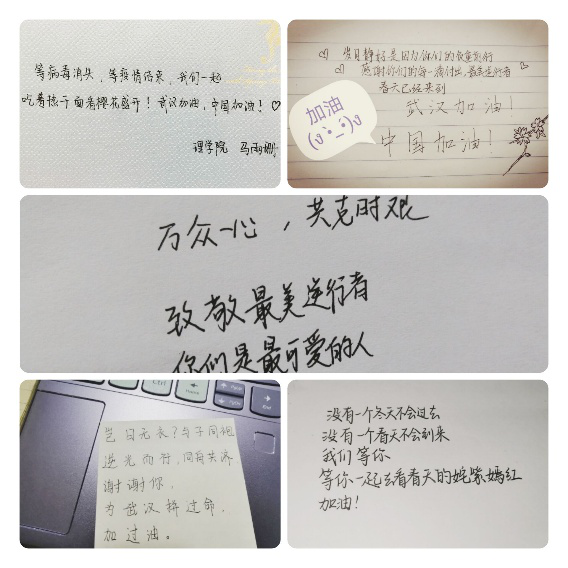 等病毒消失,等疫情结束,我们一起
吃着热干面看樱花盛开!武汉加油,中国加油!♡
理学院 马雨姗
岁月静好是因为你们的负重前行
感谢你们的每一滴付出,最美逆行者
春天已经来到
武汉加油!
中国加油!
加油
万众一心,共克时艰
致敬最美逆行者
你们是最可爱的人
岂曰无衣?与子同袍
逆光而行,同舟共济
谢谢你,
为武汉拼过命,
加过油。
Ctrl
PgUp
PgDn
没有一个冬天不会过去
没有一个春天不会到来
我们等你
等你一起去看春天的姹紫嫣红
加油!